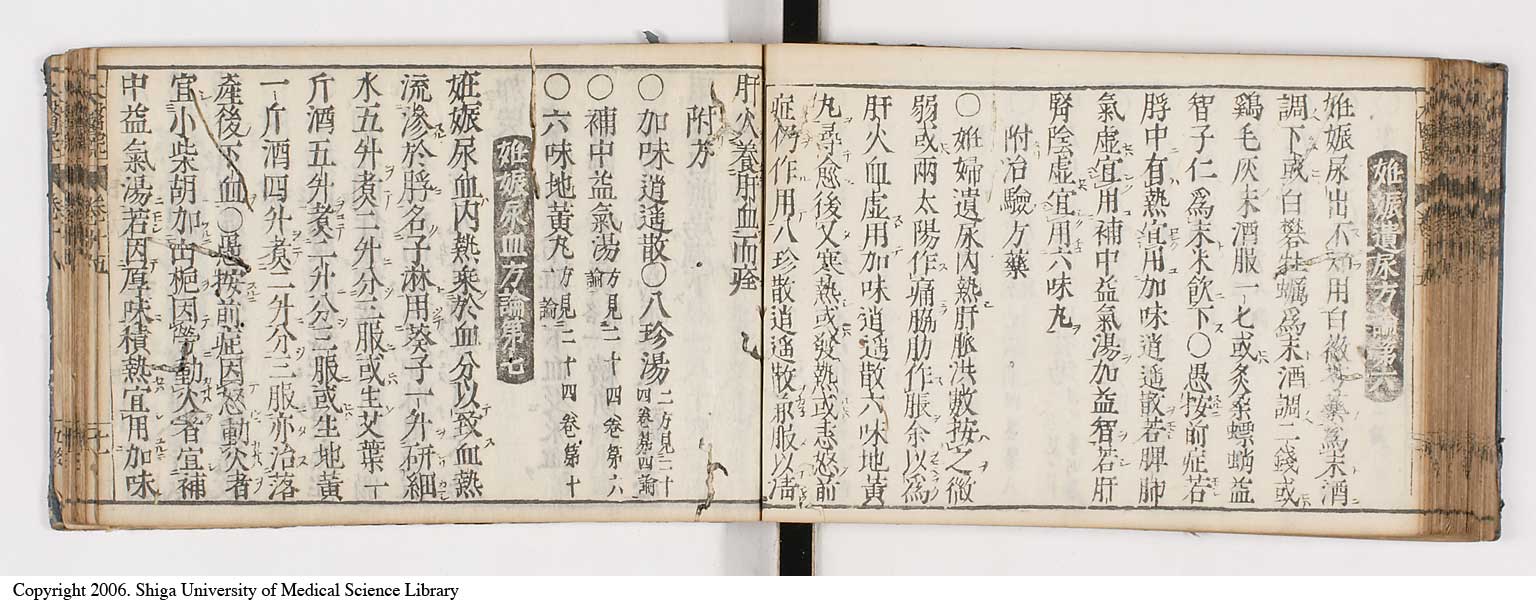 妊娠遺尿方論第六
妊娠尿出不知用白薇芍藥爲末酒
調下或白礬牡蠣爲末酒調二錢或
鷄毛灰末酒服一七或炙桑螵蛸益
智子仁爲末米飲下○愚按前症若
脬中有熱宜用加味逍遥散若脾肺
氣虚宜用補中益氣湯加益智若肝
腎陰虚宜用六味丸
附治驗方藥
○妊婦遺尿內熱肝脈洪數按之微
弱或兩太陽作痛脇肋作脹余以爲
肝火血虚用加味逍遥散六味地黄
丸尋愈後又寒熱或發熱或恚怒前
症仍作用八珍散逍遥散兼服以清
肝火養肝血而痊
附方
○加味逍遥散○八珍湯二方見二十四卷第四論
○補中益氣湯方見二十四卷第六論
○六味地黄丸方見二十四卷第十一論
妊娠尿血方論第七
妊娠尿血內熱乗於血分以致血熱
流滲於脬名子淋用葵子一升研細
水五升煮二升分三服或生艾葉一
斤酒五升煮二升分三服或生地黄
一斤酒四升煮二升分三服亦治落
產後下血○愚按前症因怒動火者
宜小柴胡加山梔因勞動火者宜補
中益氣湯若因厚味積熱宜用加味
Copyright 2006. Shiga University of Medical Science Library